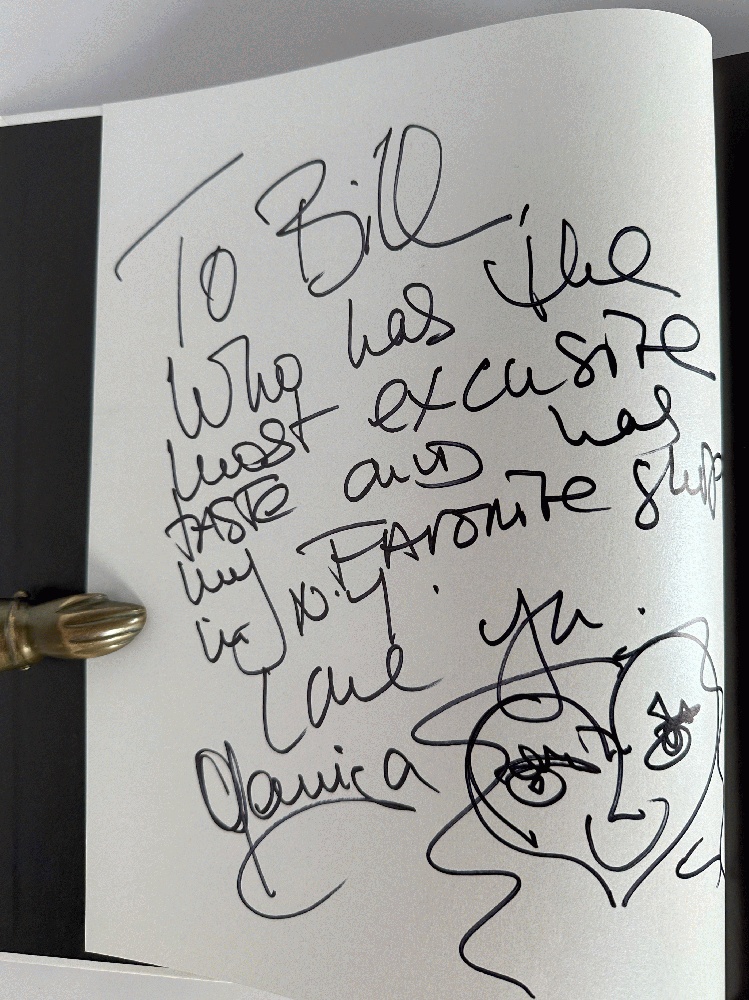 To Bill,
Who has the
most excusite
TASTE and has
my FAVORITE shop
in N.Y.
Love Ya.